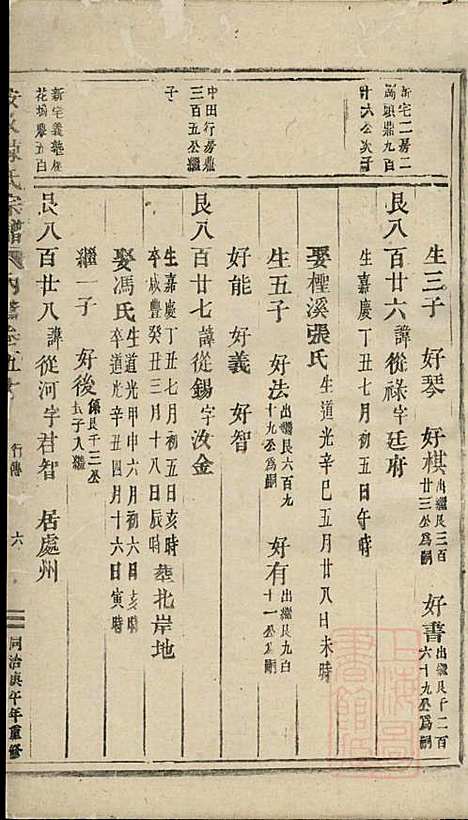 生三子 好琴 好棋 出繼良三百廿三公爲嗣 好書 出繼良千二百六十九公爲嗣
新宅二房二
鼎九百
廿六公次子
良八百廿六 諱從祿字廷府
生嘉慶丁丑七月初五日午時
娶檉溪張氏 生道光辛巳五月廿八日未時
生五子 好法 出繼良六百九十九公爲嗣 好有 出繼良九百十一公爲嗣
好能 好義 好智
中田行房鼎
三百五公繼
子
良八百廿七 諱從錫字汝金
生嘉慶丁丑七月初五日亥時
卒咸豐癸丑三月十八日辰時 塟北岸地
娶馮氏 生道光甲申六月初六日亥時
卒道光辛丑四月十六日寅時
繼一子 好後 係良千三公子入繼
新宅義
花鼎五百
良八百廿八 諱從河字君智 居處州
氏宗譜
行傳 六
同治庚午年重修
上海圖書館藏